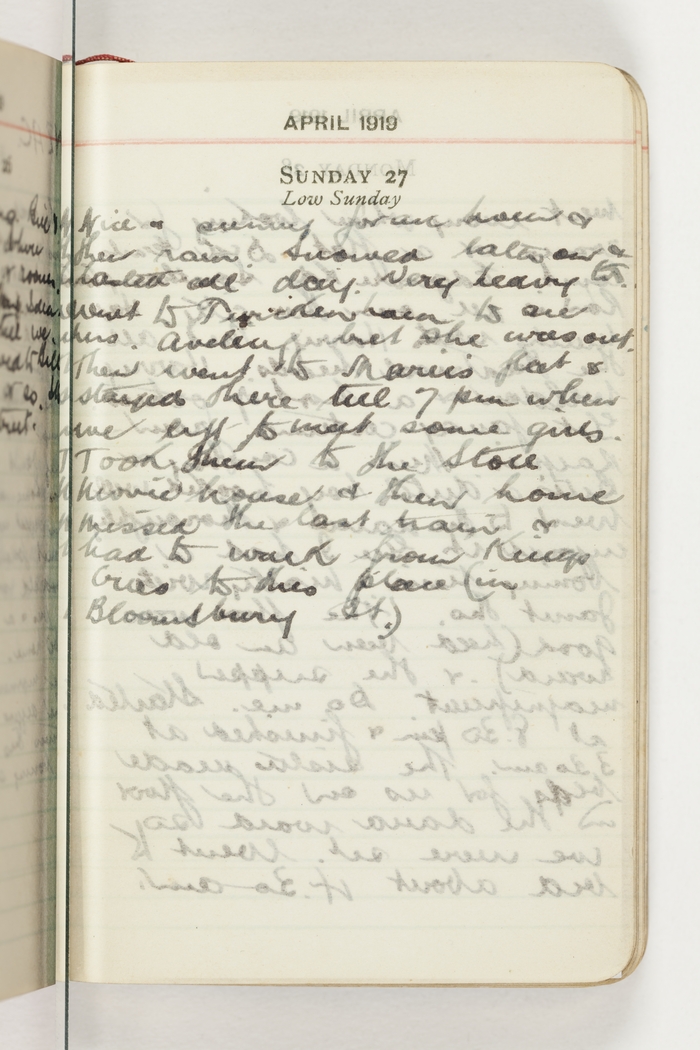 APRIL 1919
SUNDAY 27
Low Sunday
Nice & sunny for an hour &
then rain. Snowed later on &
lasted all day. Very heavy too.
went to Twickenham to see
Mrs. but she was out.
Then went to Maries flat &
stayed there till 7 pm when
we left to meet some girls.
Took them to the Stoll
Movie house & then home
missed the last train &
had to walk from Kings
Cross to this place (in
Bloomsbury St.)